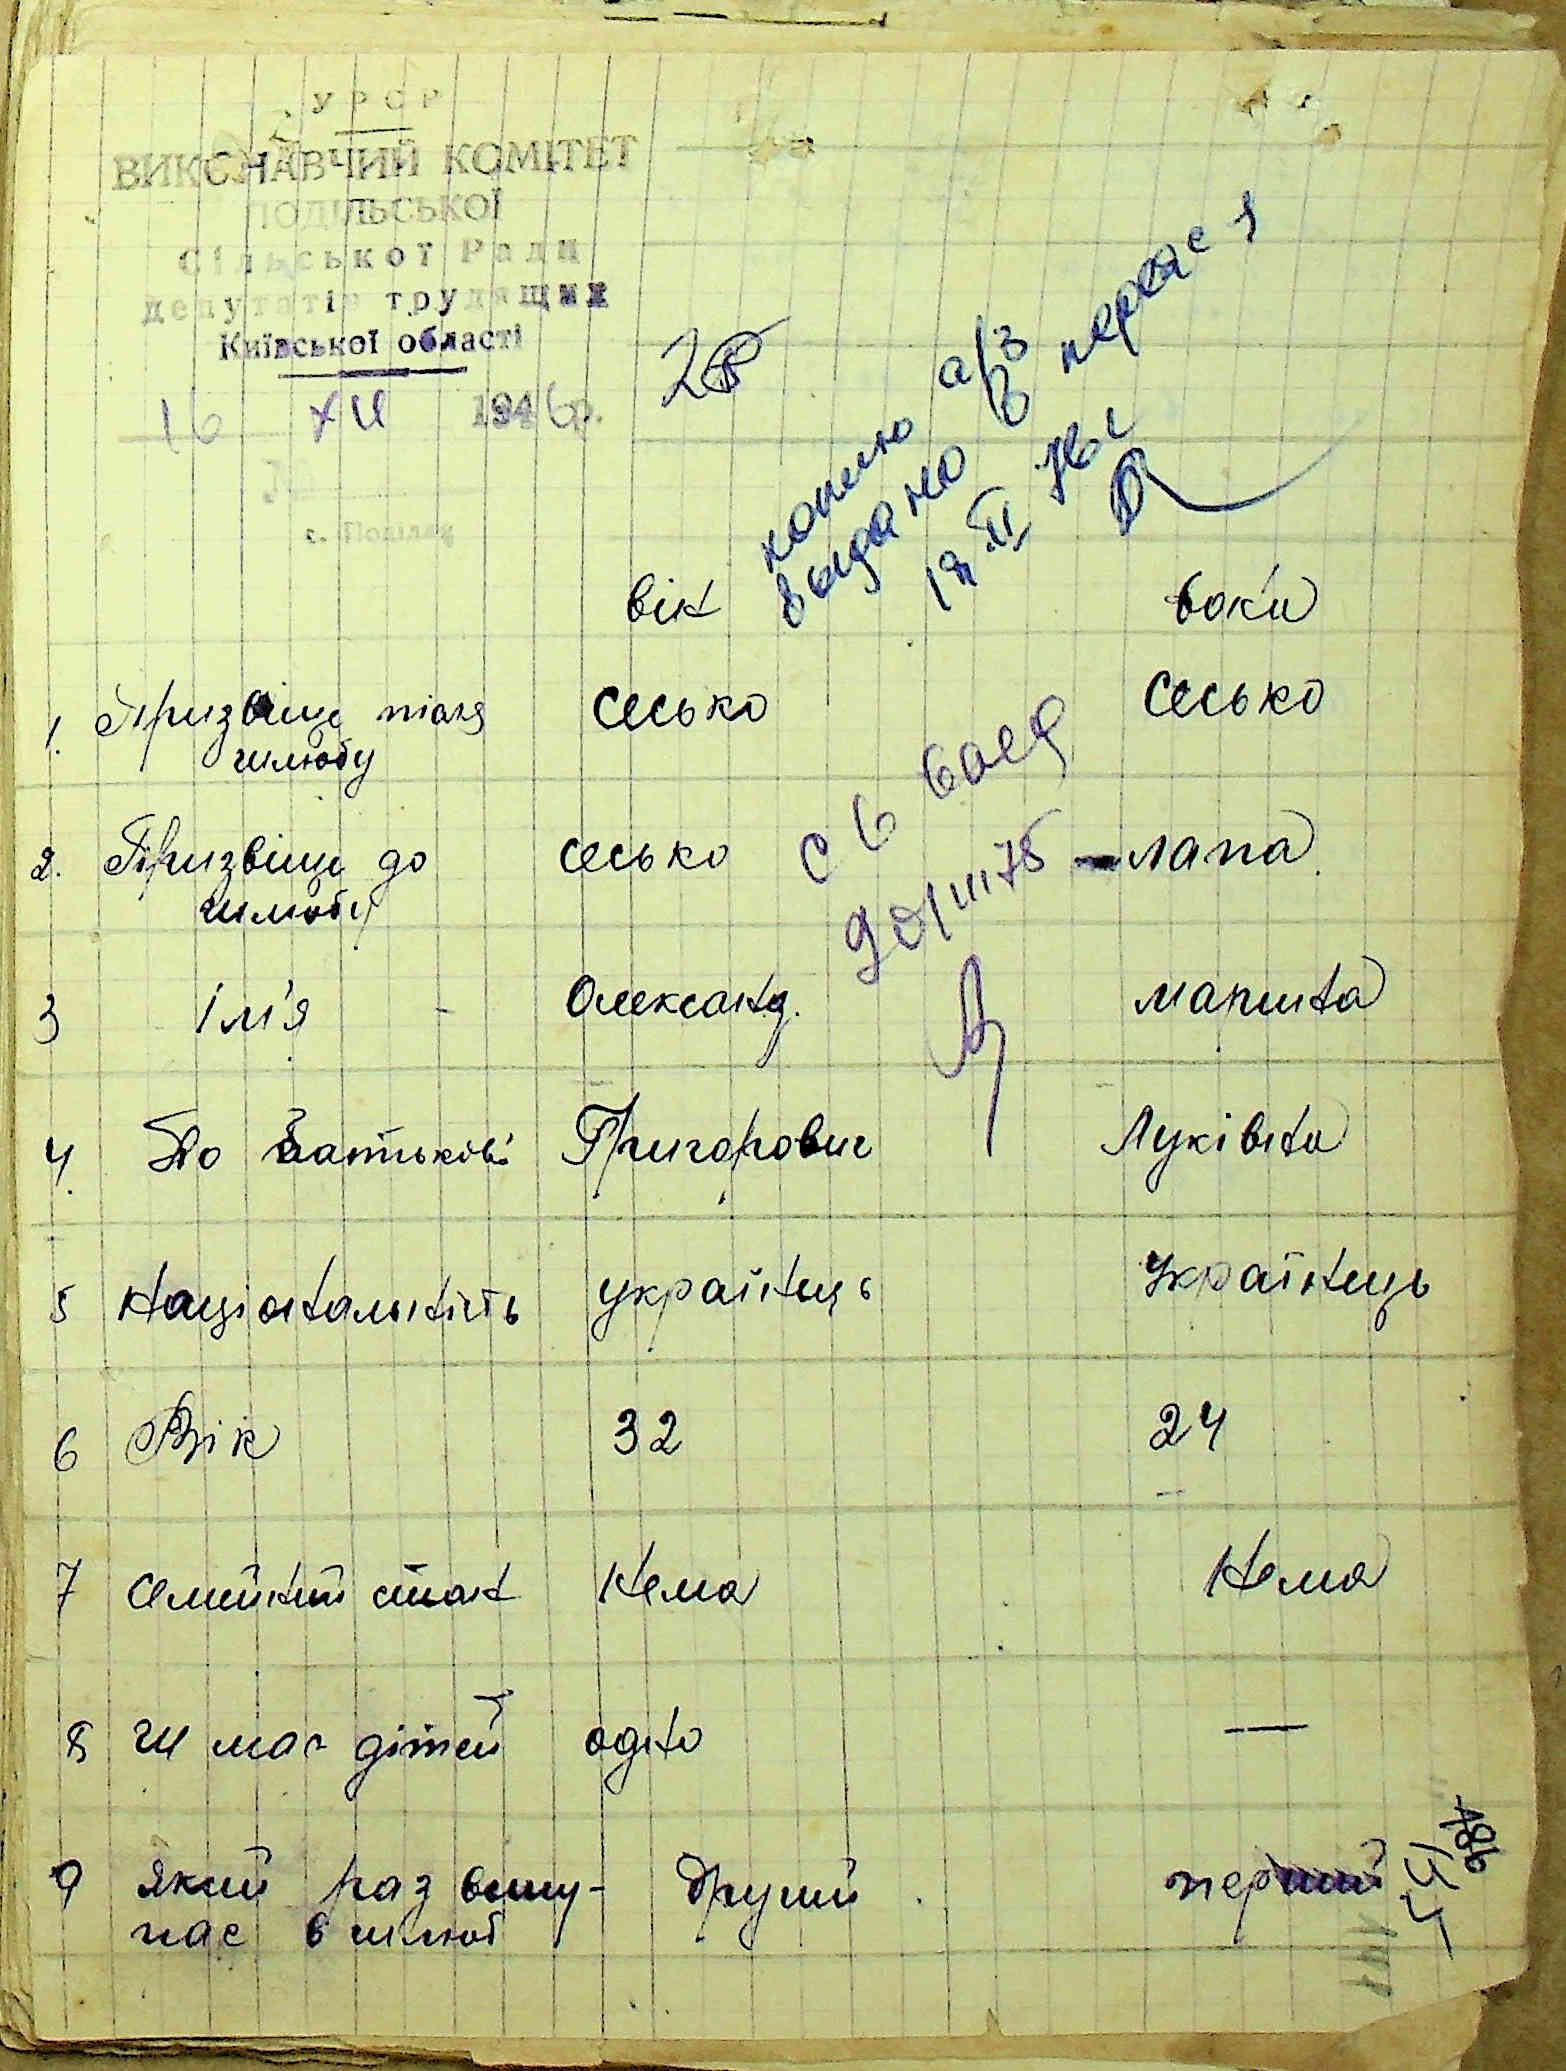 УРСР
ВИКОНАВЧИЙ КОМІТЕТ
ПОДІЛЬСЬКОЇ
Сільської Ради
депутатів трудящих
Київської області
16 XII 1946р.
с. Поділля
копию а/з
выдано в
19 II 76г
він вона
1. Призвіще після сесько сесько
шлюбу
2. Призвіще до сесько лапа
шлюбу
3 Ім'я Олександ. марина
4. По батькові Григорович Луківна
5 Національність українець Українець
6 Вік 32 24
7 семейний стан Нема Нема
8 чи має дітей одно —
9 Який раз всту- другий перший
пає в шлюб